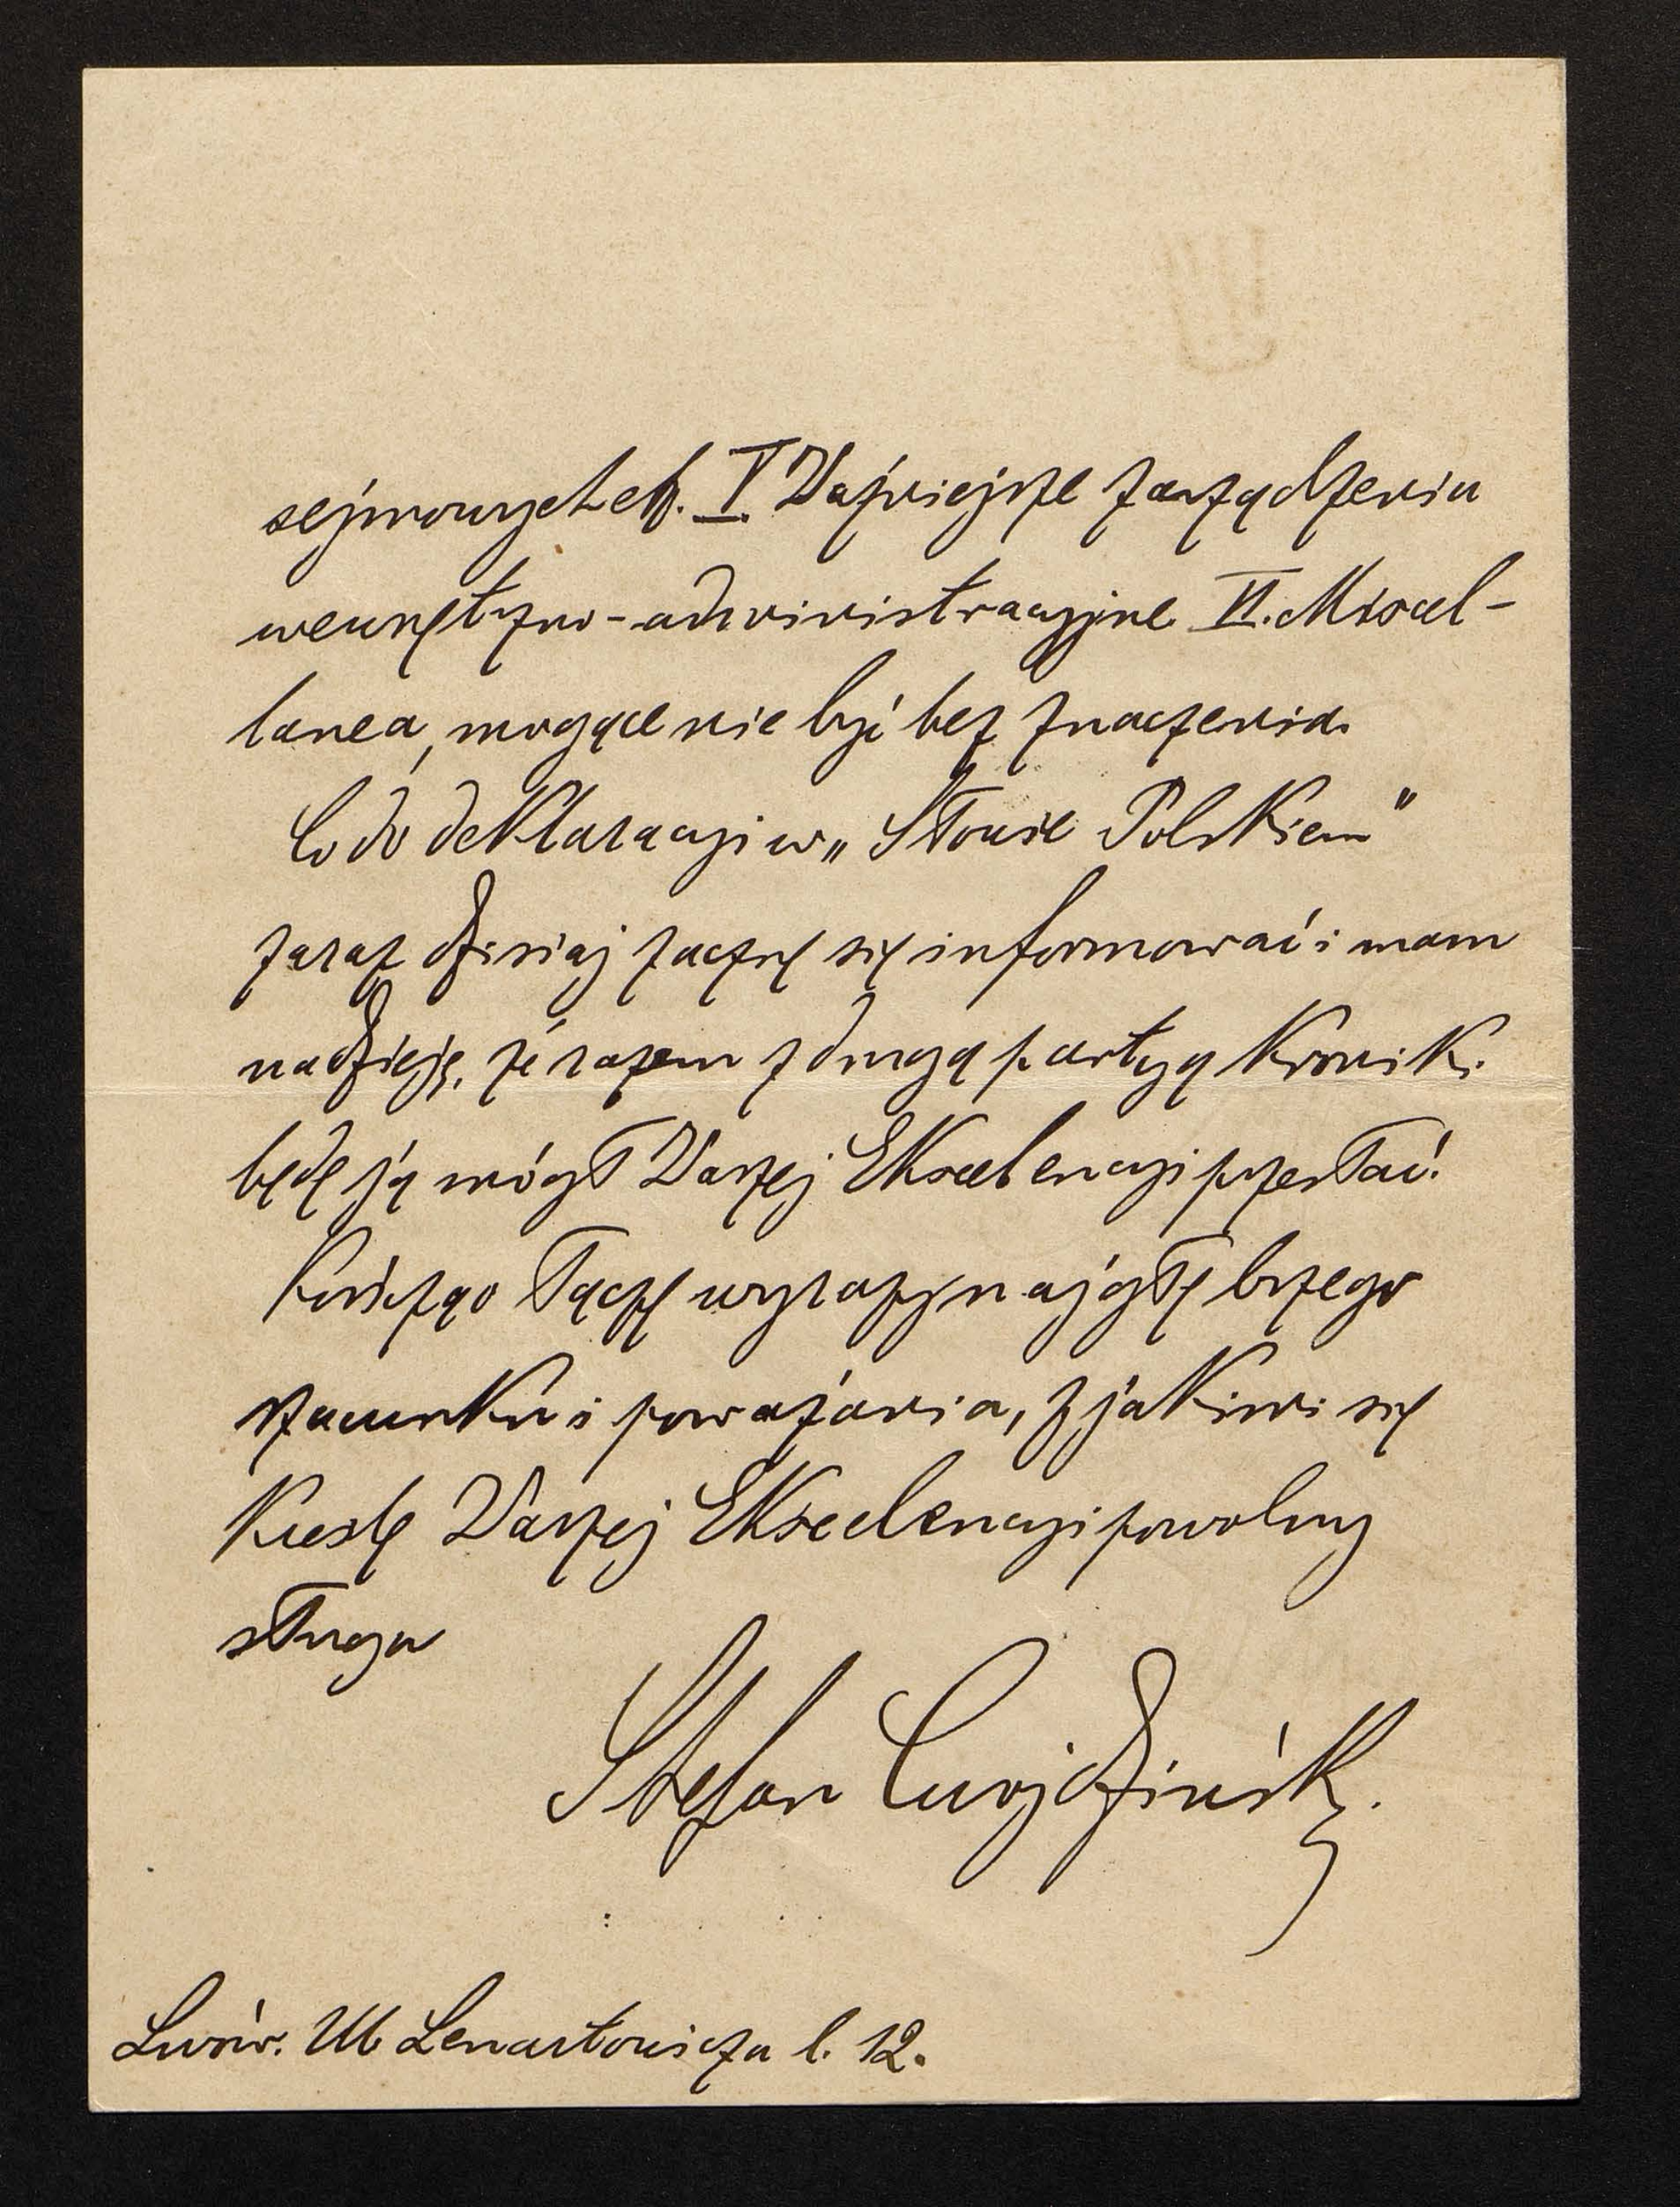 sejmowych etc. V. Ważniejsze zarządzenia
wewnętrzno-administracyjne VI. Miscel-
lanea, mogące nie być bez znaczenia.
Co do deklaracyi w „Słowie Polskiem"
zaraz dzisiaj zacznę się informować i mam
nadzieję, że razem z drugą partyą Kronik.
będę ją mógł Waszej Ekscelencyi przesłać.
Kończąc łączę wyrazy najgłębszego
szacunku i poważania, z jakimi się
kreślę Waszej Ekscelencyi powolny
sługa
Stefan Cwojdzińsk.
Lwów. Ul. Lenartowicza l. 12.